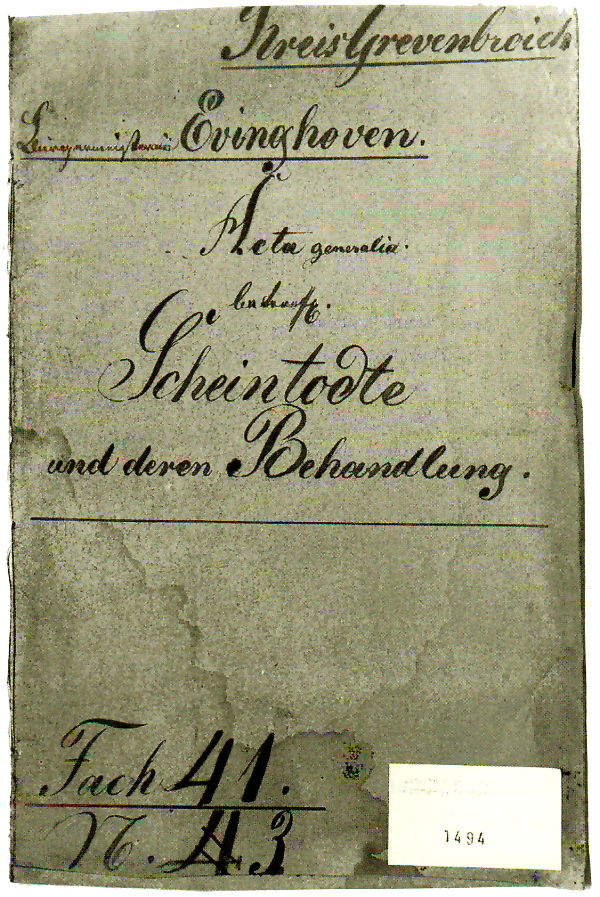 Kreis Grevenbroich
Bürgermeisterei Evinghoven.
Acta generalia.
betreff.
Scheintodte
und deren Behandlung.
Fach 41.
N. 43
1494